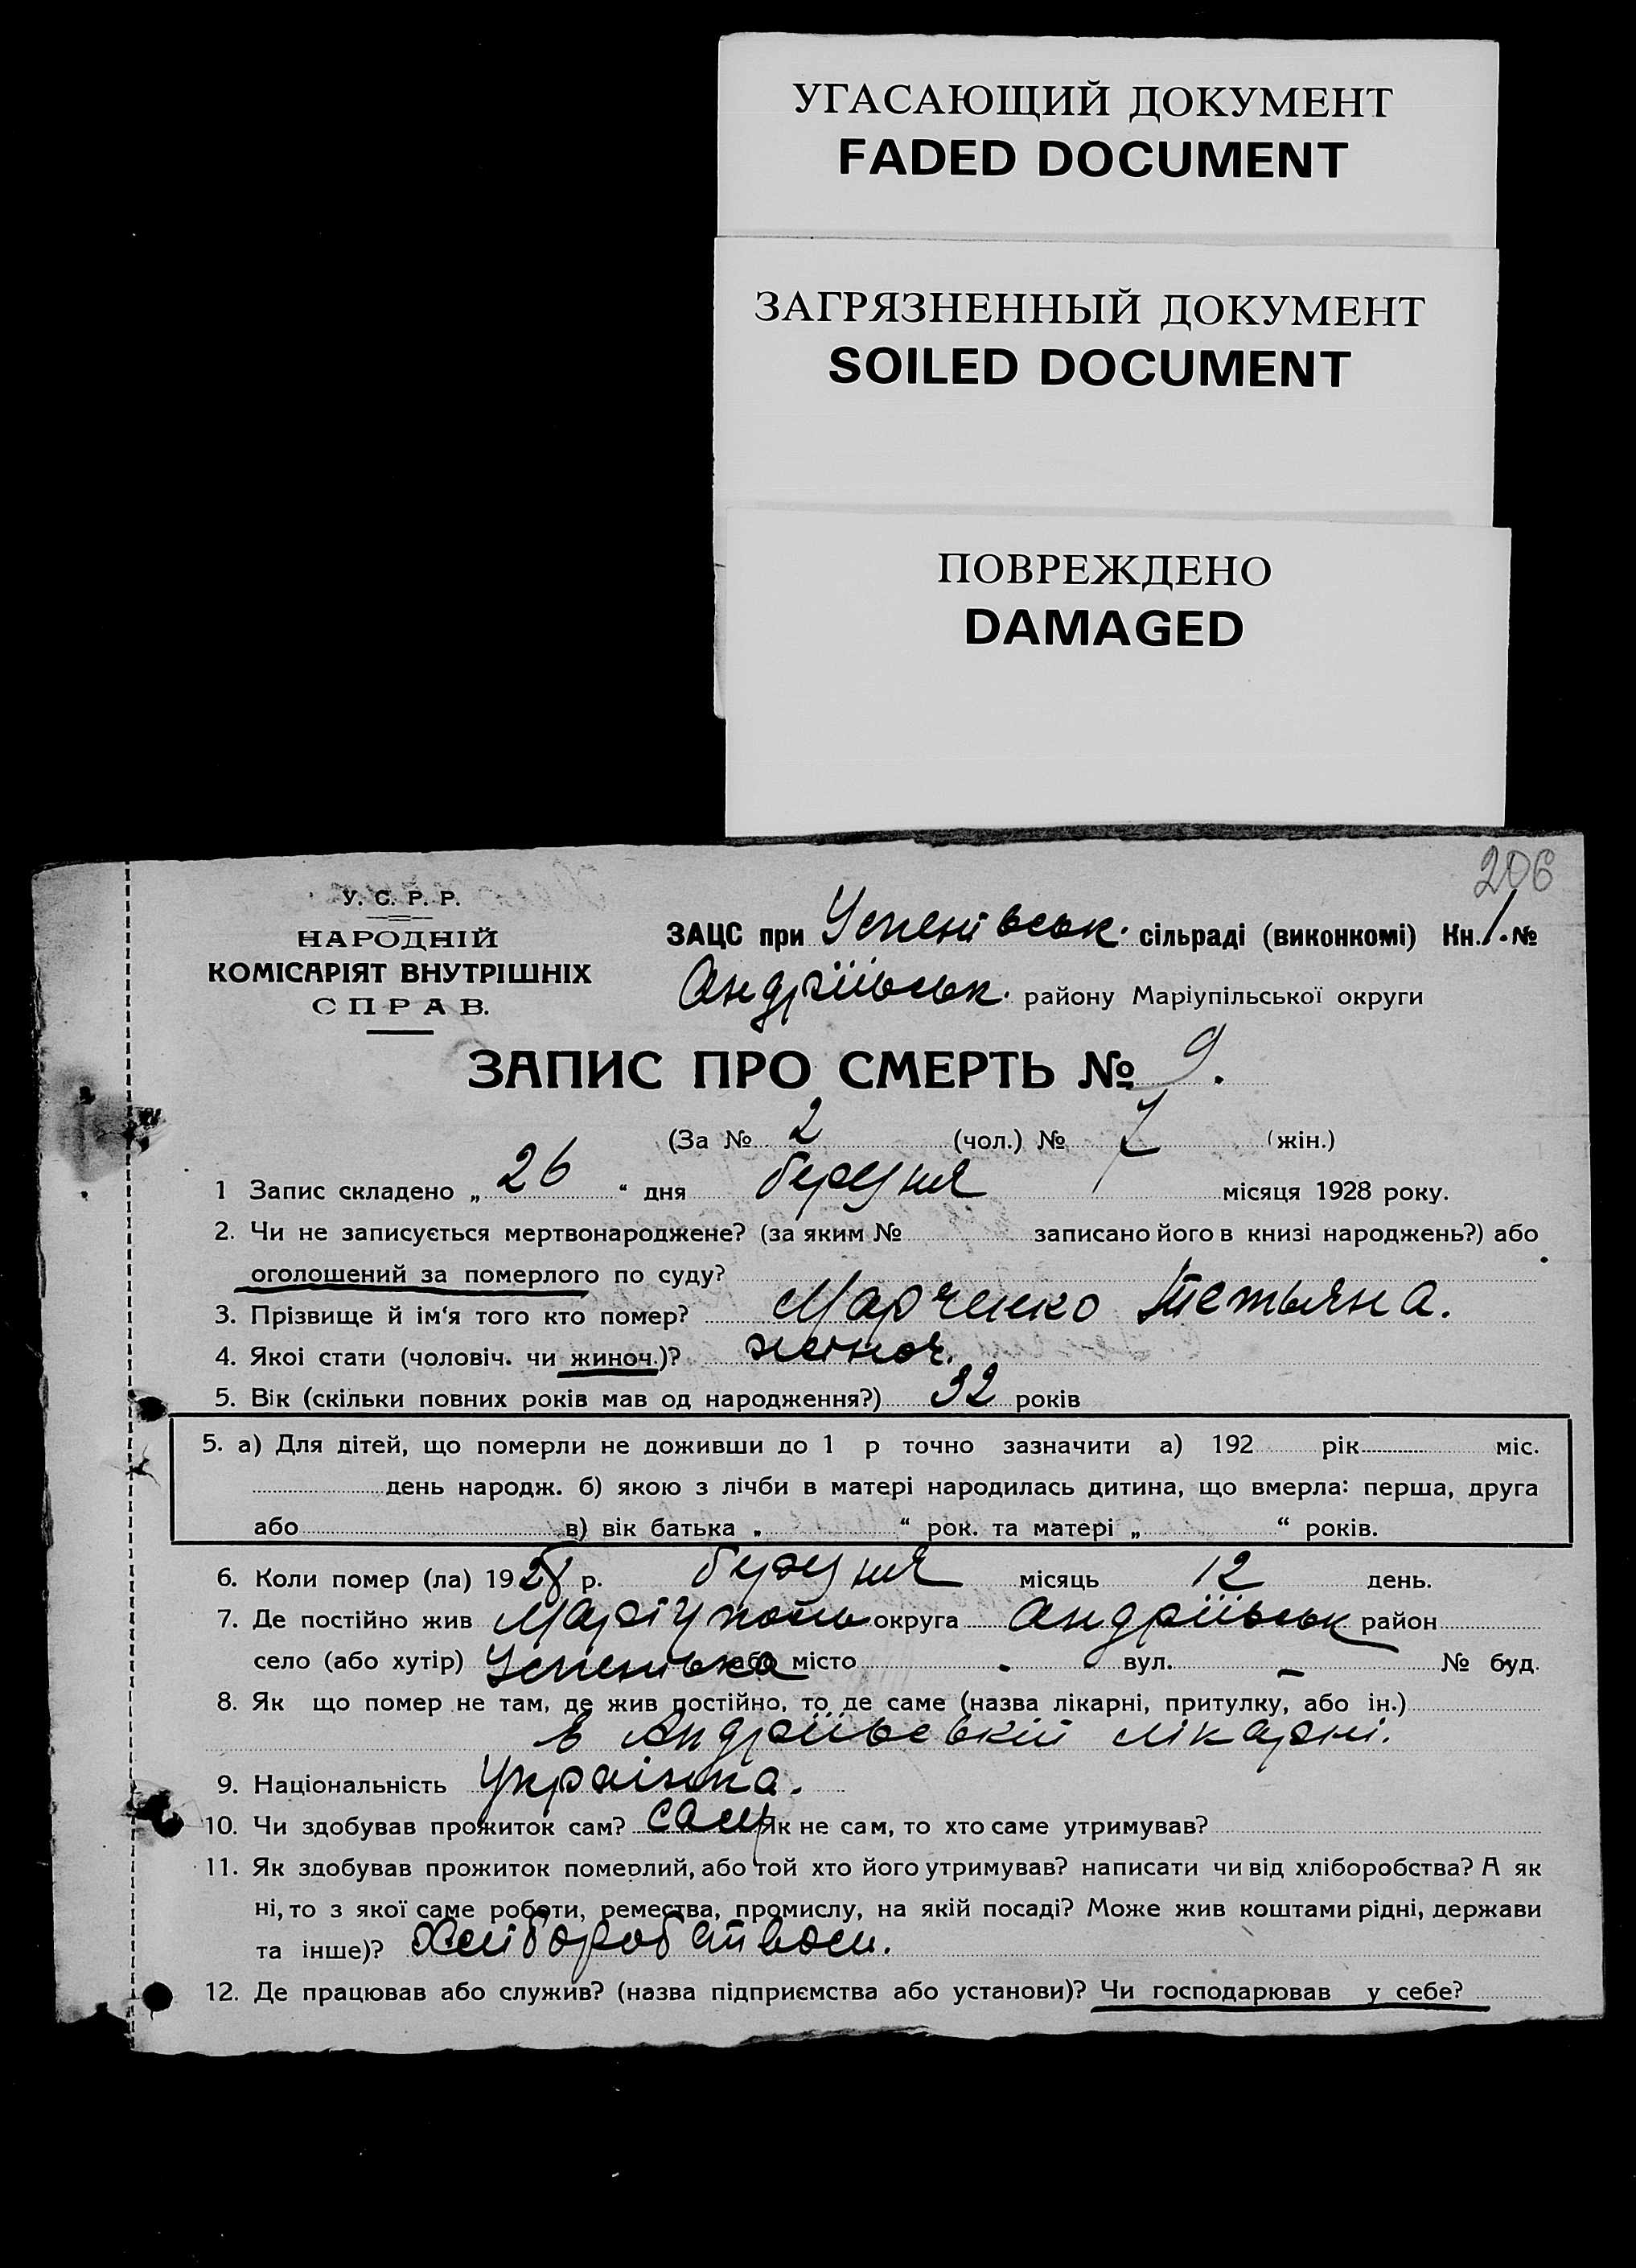 УГАСАЮЩИЙ ДОКУМЕНТ
FADED DOCUMENT
ЗАГРЯЗНЕННЫЙ ДОКУМЕНТ
SOILED DOCUMENT
ПОВРЕЖДЕНО
DAMAGED
206
У. С. Р. Р.
НАРОДНІЙ
КОМІСАРІЯТ ВНУТРІШНІХ
СПРАВ.
ЗАЦС при Успенівськ. сільраді (виконкомі) Кн. 1. №
Андріївськ. району Маріупільської округи
ЗАПИС ПРО СМЕРТЬ № 9.
(За № 2 (чол.) № 7 (жін.)
1 Запис складено „ 26 “ дня березня місяця 1928 року.
2. Чи не записується мертвонароджене? (за яким № записано його в книзі народжень?) або
оголошений за померлого по суду?
3. Прізвище й ім‘я того кто помер? Марченко Тетьяна.
4. Якоі стати (чоловіч. чи жиноч.)? жіноч.
5. Вік (скільки повних років мав од народження?) 32 років
5. а) Для дітей, що померли не доживши до 1 р точно зазначити а) 192 рік міс.
день народж. б) якою з лічби в матері народилась дитина, що вмерла: перша, друга
або в) вік батька „ “ рок. та матері „ “ років.
6. Коли помер (ла) 1928 р. березня місяць 12 день.
7. Де постійно жив Маріуполь округа Андріївськ район
село (або хутір) Успенівка або місто - вул. - № буд.
8. Як що помер не там, де жив постійно, то де саме (назва лікарні, притулку, або ін.)
в Андріївській лікарні.
9. Національність Українка.
10. Чи здобував прожиток сам? сам Як не сам, то хто саме утримував?
11. Як здобував прожиток померлий, або той хто його утримував? написати чи від хліборобства? А як
ні, то з якої саме роботи, ремества, промислу, на якій посаді? Може жив коштами рідні, держави
та інше)? Хліборобством.
12. Де працював або служив? (назва підприємства або установи)? Чи господарював у себе?